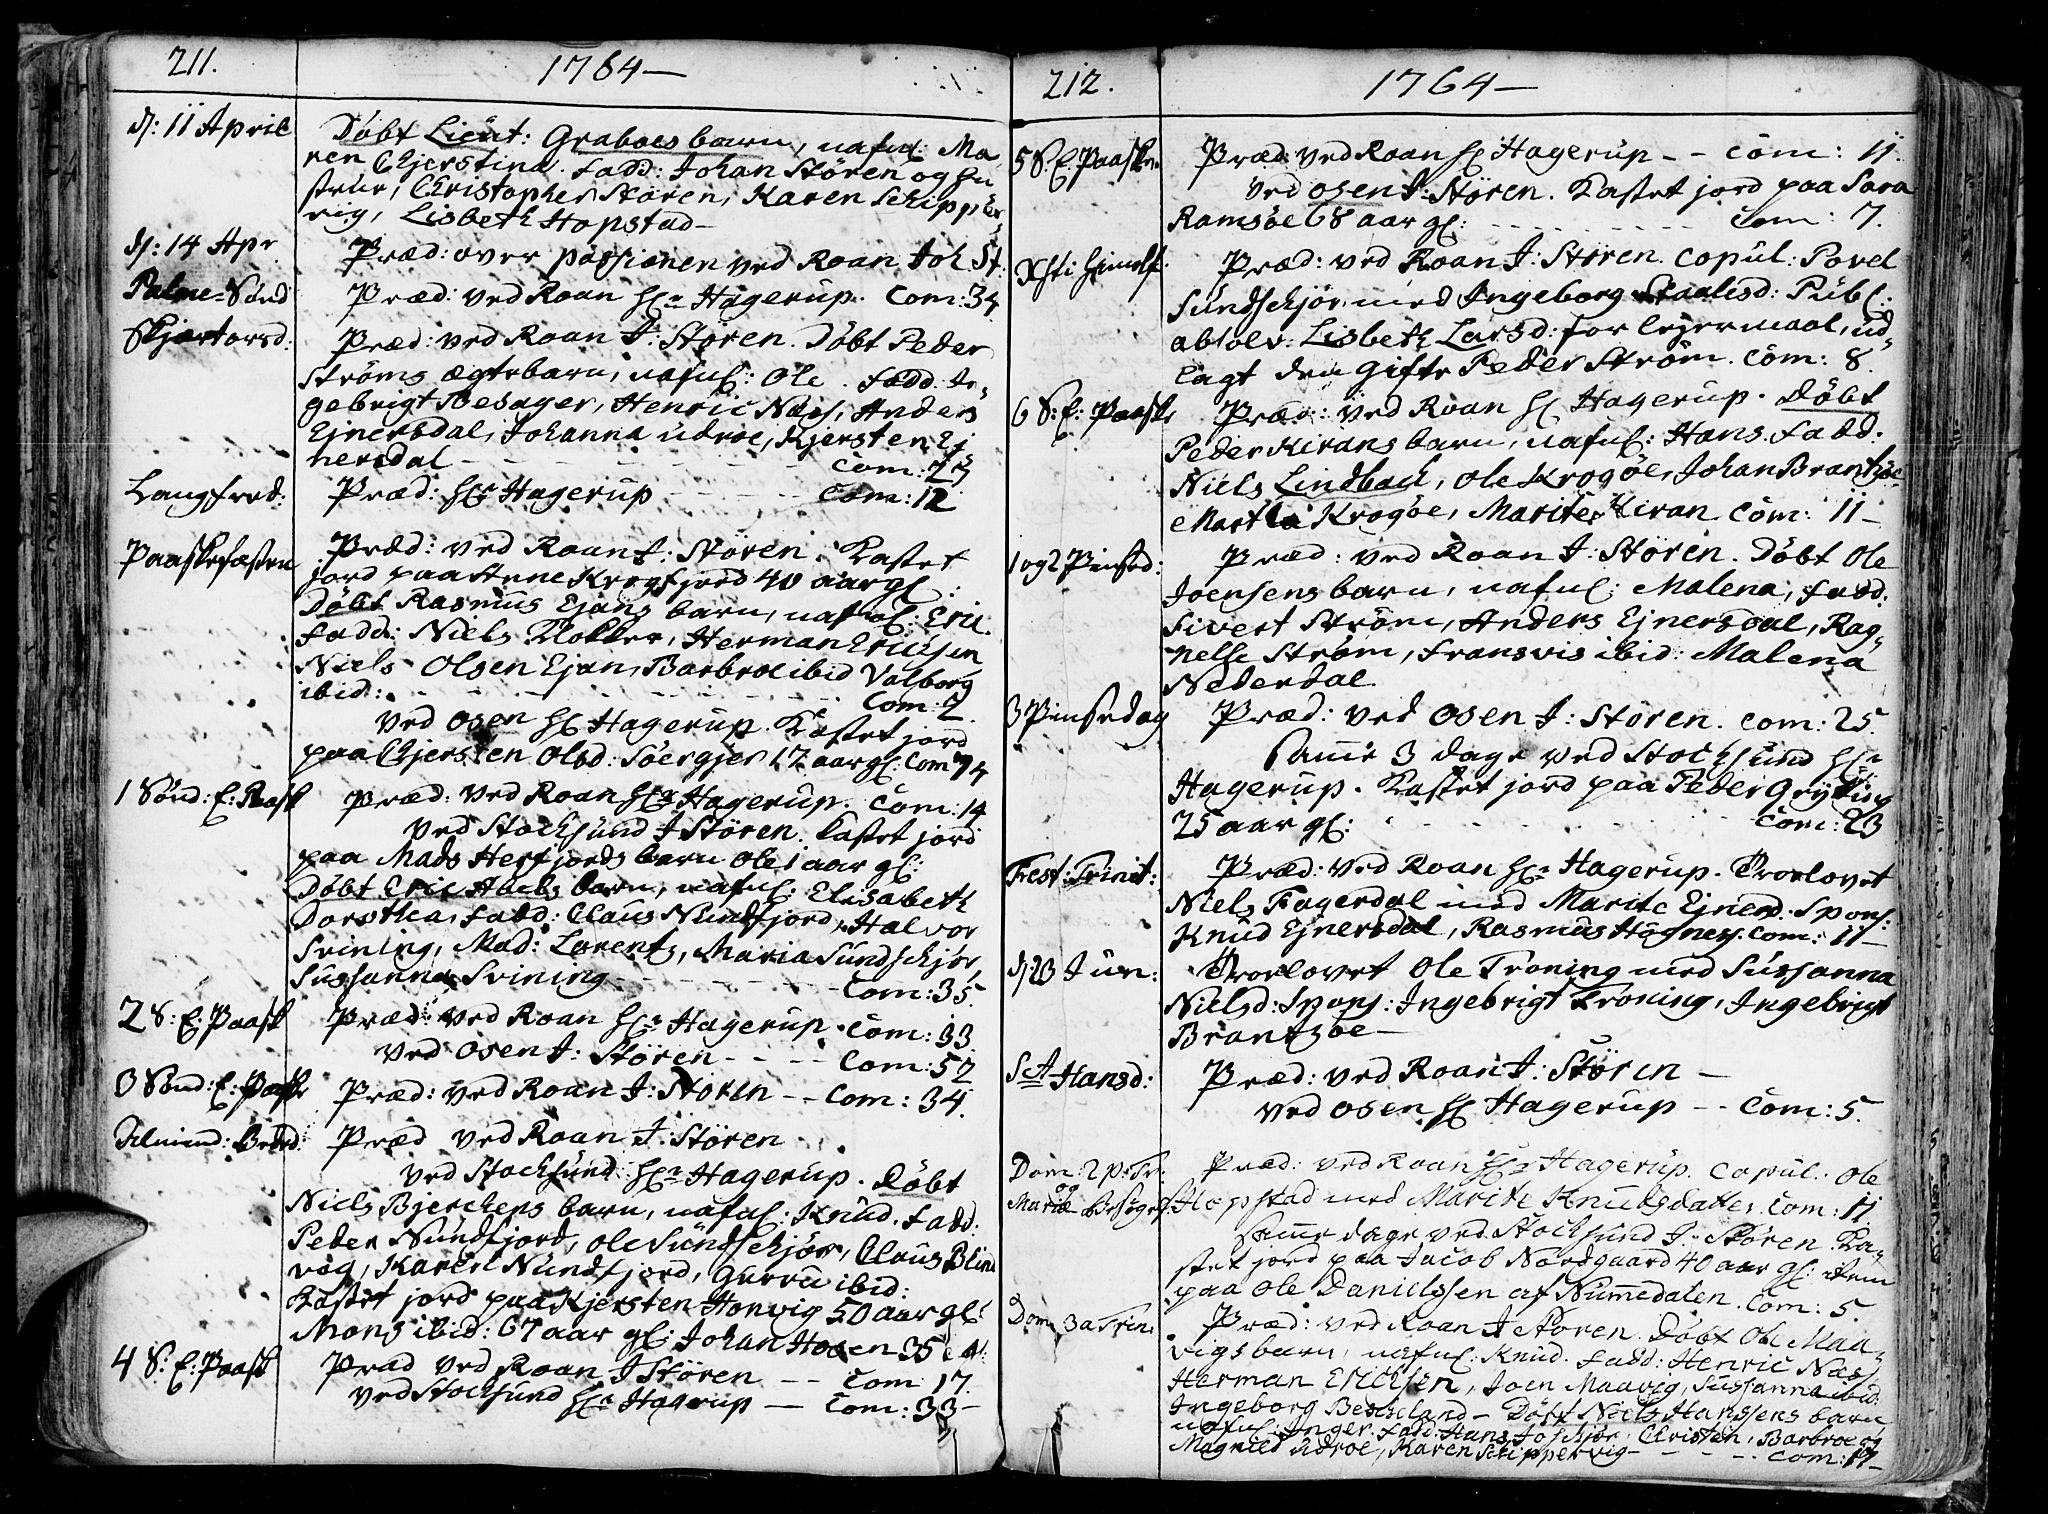 211. 1764—
d: 11 April Døbt Lieut: Graboes barn, nafnl: Ma
ren Chjerstina. Fadd: Johan Stören og Hu
strue, Christopher Stören, Karen Schipper
vig, Lisbeth Hopstad—
d: 14 Apr. Præd: over passionen ved Roan Joh St:
Palme-Sönd Præd: ved Roan Hr Hagerup. Com: 34
Skjertorsd: Præd: ved Roan J: Stören. Döbt Peder
Ströms ægte barn, nafnl: Ole. Fadd: In-
gebrigt Besager, Henric Næss, Anders
Ejnersdal, Johanna Udroe, Kjersten Ej
nersdal — Com: 23
Langfred: Præd: Hr Hagerup — Com: 12
Paaskefæsten Præd: ved Roan J: Stören. Kastet
jord paa Anne Krogfjord 40 aar gl:
Döbt Rasmus Ejans barn, nafnl: Eric.
Fadd: Niels Klokker, Herman Ericksen
Niels Olsen Ejan, Barbroe ibid Valborg
ibid: — Com: 2.
ved Osen Hr Hagerup. Kastet jord
paa Chjersten Olsd: Söergjer 17 aar gl: Com 94
1 Sönd: E: Paask Præd: ved Roan Hr Hagerup. Com: 14
ved Stocksund J Stören. Kastet jord
paa Mads Herfjords barn Ole 1 aar gl:
Döbt Eric Abels barn, nafnl: Elisabeth
Dorothea, Fadd: Claus Nundfjord, Halvor
Svining, Mad: Lorentz, Maria Sundschjör,
Sussanna Svining — Com: 35.
2 S: E: Paask Præd: ved Roan Hr Hagerup. Com: 33.
ved Osen J: Stören — Com: 52
3 Sönd: E: Paask Præd: ved Roan J: Stören — Com: 34.
Almind: Beded: Præd ved Roan J: Stören.
ved Stocksund Hr Hagerup. Döbt
Niels Bjerchens barn, nafnl: Knud. Fadd:
Peder Nundfjord, Ole Sundschjör, Claus Blind
vog, Karen Nundfjord, Gurru ibid:
Kastet jord paa Kjersten Honvig 50 aar gl:
Mons ibid: 67 aar gl: Johan Hosen 35
4 S: E: Paask Præd ved Roan J Stören — Com 17.
ved Stocksund Hr Hagerup — Com: 33—
212. 1764—
5 S: E: Paaske Præd: ved Roan Hr Hagerup — Com: 11.
ved Osen J: Stören. Kastet jord paa Sara
Ramsöe 68 aar gl: — Com: 7.
Xsti Himelf. Præd: ved Roan J: Stören. Copul: Povel
Sundschjör med Ingeborg Staalesd: Publ:
absolv: Lisbeth Larsd: for lejermaal, ud-
lagt den Gifte Peder Ström. Com: 8.
6 S: E: Paask Præd: ved Roan Hr Hagerup. Döbt
Peder Kirans barn, nafnl: Hans. Fadd.
Niels Lindbach, Ole Krogöe, Johan Brantzöe
Martha Krogöe, Marite Kiran. Com: 11—
1 og 2 Pinsed: Præd: ved Roan J: Stören. Döbt Ole
Joensens barn, nafnl: Malena, Fadd:
Sivert Ström, Anders Ejnersdal, Rag-
nelle Ström, Fransvis ibid: Malena
Nederdal.
3 Pinsedag Præd: ved Osen J: Stören. Com: 25.
Samme 3 dage ved Stocksund Hr
Hagerup. Kastet jord paa Peder Gryting
25 aar gl: — Com: 23
Fest: Trinit: Præd: ved Roan Hr Hagerup. Trolovet
Niels Fagerdal med Marite Ejnersd. Spons:
Knud Ejnersdal, Rasmus Hognes. Com: 11—
d: 23 Juni: Trolovet Ole Troning med Sussanna
Nielsd: Spons: Ingebrigt Troning, Ingebrigt
Brantzöe—
Sct Hansd: Præd: ved Roan J: Stören —
ved Osen Hr Hagerup — Com: 5.
Dom: 2 p: Tr: Præd: ved Roan Hr Hagerup. Copul. Ole
og
Mariæ Besögels Hopstad med Marite Knudsdatter. Com: 11
Samme dage ved Stocksund J: Stören. Ka-
stet jord paa Jacob Nordgaard 40 aar gl: item
paa Ole Danielssen af Numedalen. Com: 5.
Dom 3 a Trin: Præd: ved Roan J Stören. Döbt Ole Maa-
vigs barn, nafnl: Knud. Fadd: Henric Næss,
Herman Erichsen, Joen Maavig, Sussanna ibid:
Ingeborg Bescheland — Döbt Niels Hanssens barn
nafnl: Inger. Fadd: Hans Johschjör, Christen, Barbroe og
Magnild Udroe, Karen Schippervig — Com: 17—